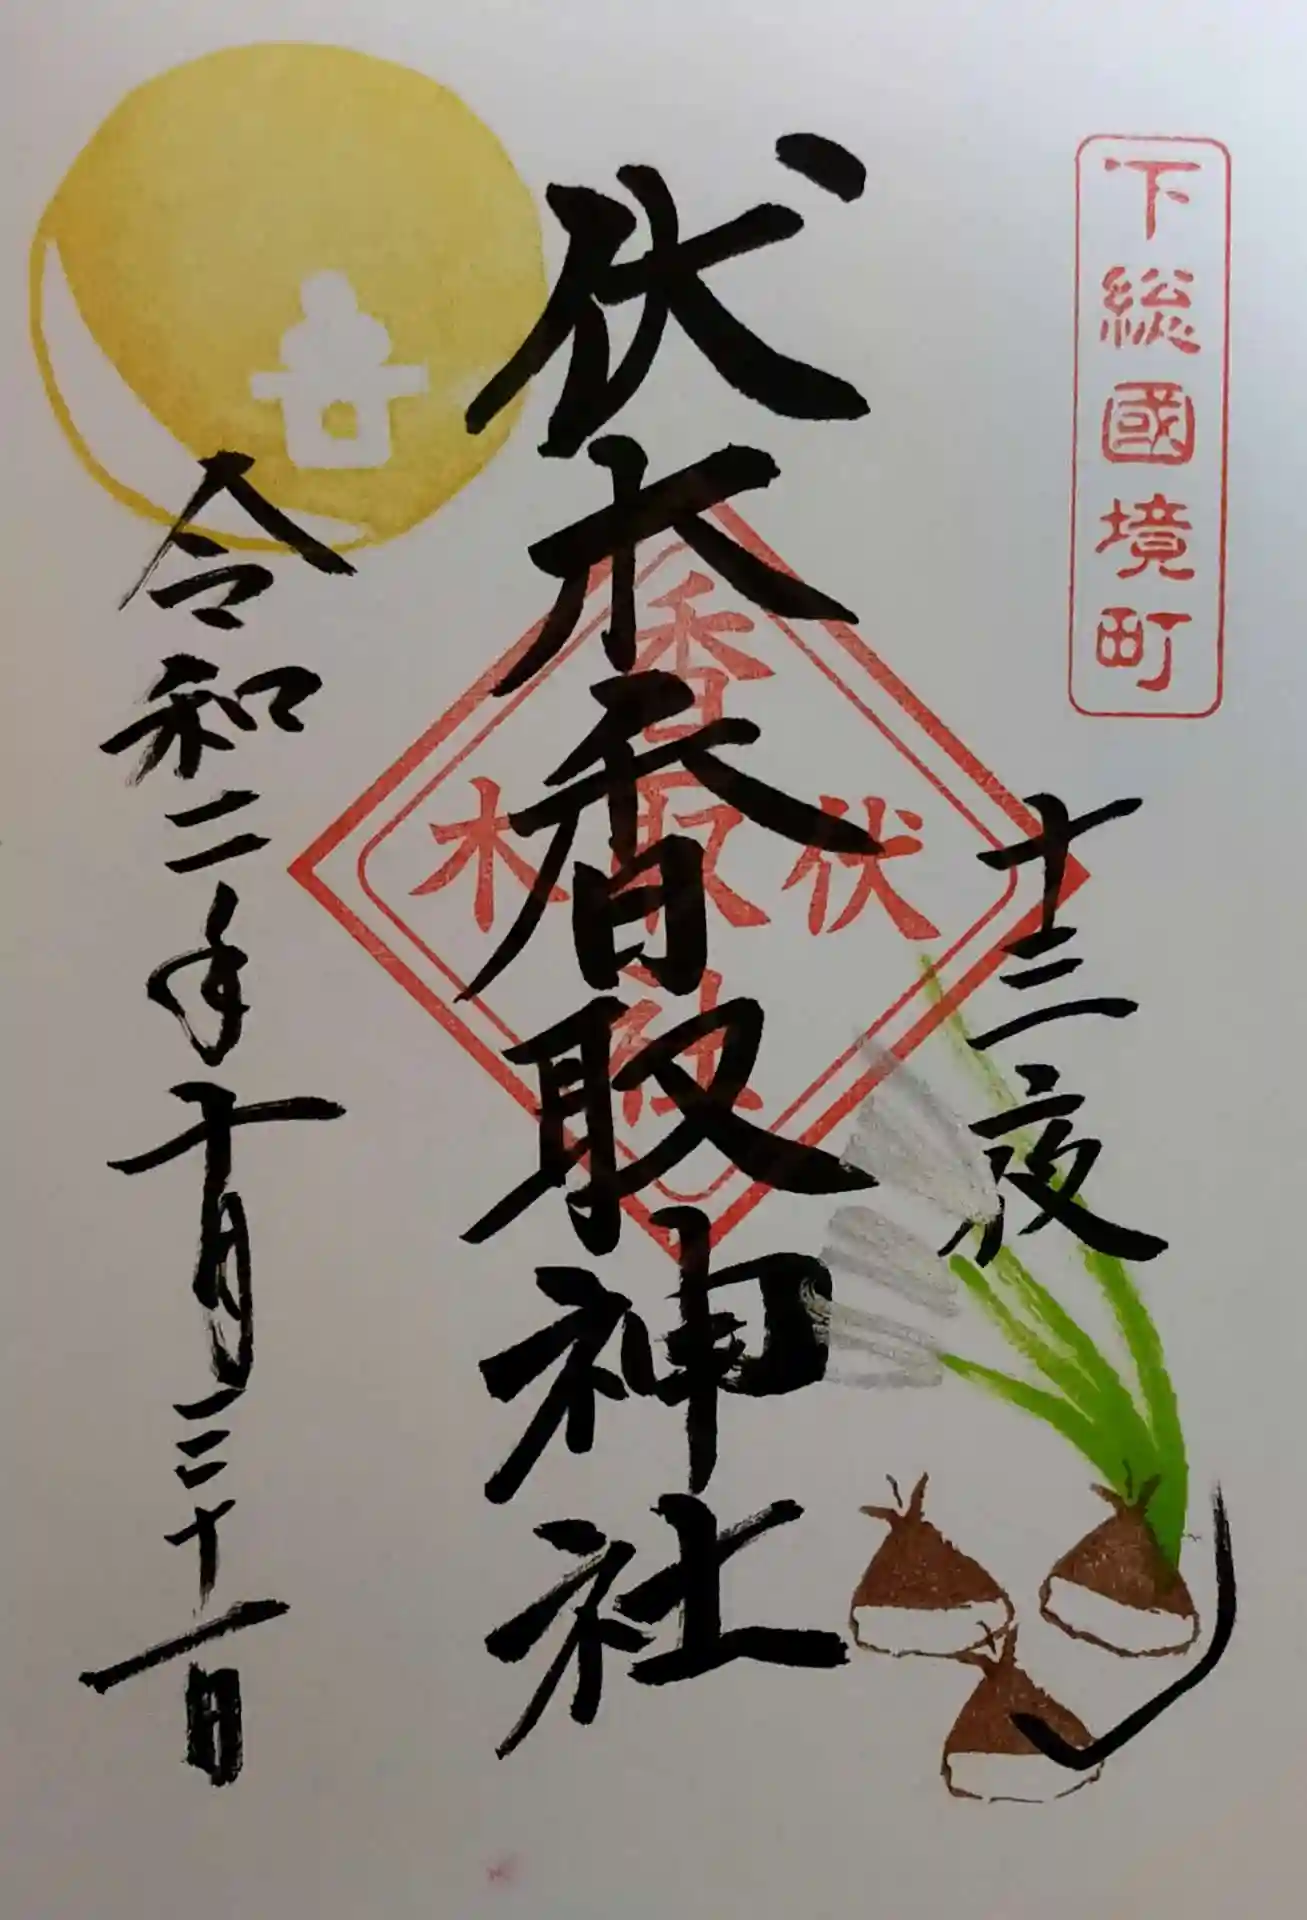 下総國境町
十三夜
伏木香取神社
伏木
香取社
令和二年十月三十一日